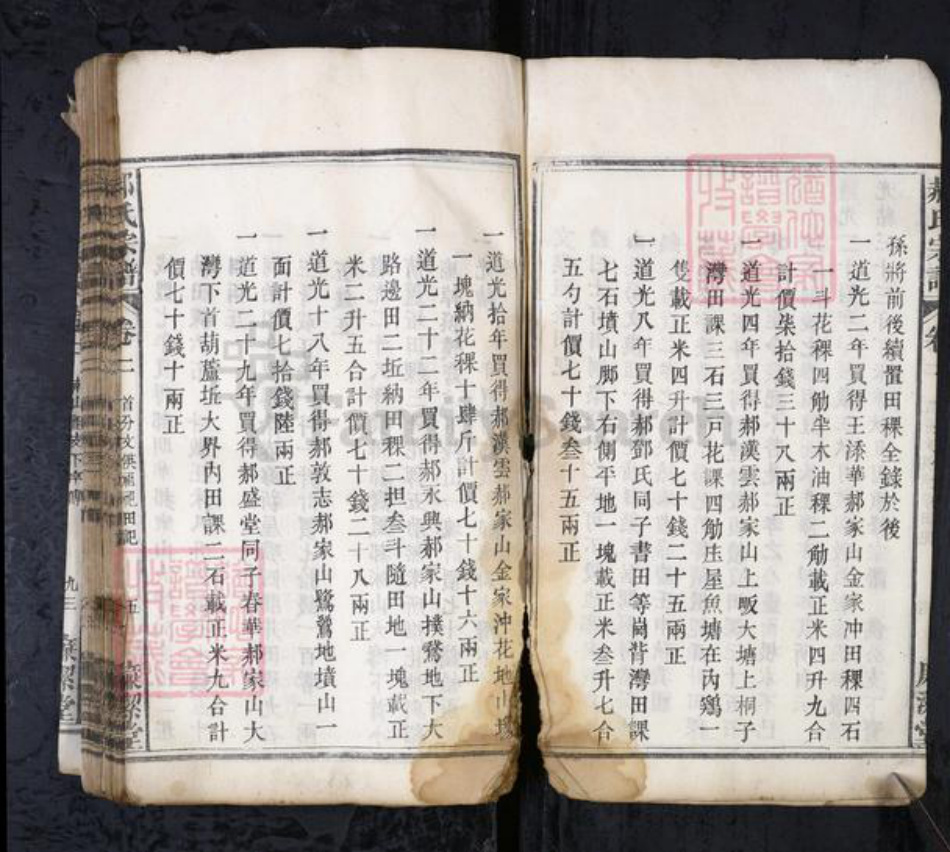 孫將前後續置田稞全錄於後
一道光二年買得王添華郝家山金家冲田稞四石
一斗花稞四觔半木油稞二觔載正米四升九合
計價柒拾錢三十八兩正
一道光四年買得郝漢雲郝家山上畈大塘上桐子
灣田課三石三戸花課四觔庄屋魚塘在內鷄一
隻載正米四升計價七十錢二十五兩正
一道光八年買得郝鄧氏同子書田等崗背灣田課
七石墳山脚下右側平地一塊載正米叁升七合
五勺計價七十錢叁十五兩正
一道光拾年買得郝漢雲郝家山金家沖花地山塲
一塊納花稞十肆斤計價七十錢十六兩正
一道光二十二年買得郝永興郝家山撲鵞地下大
路邊田二坵納田稞二担叁斗隨田地一塊載正
米二升五合計價七十錢二十八兩正
一道光十八年買得郝敦志郝家山鷺鷥地墳山一
面計價七拾錢陸兩正
一道光二十九年買得郝盛堂同子春華郝家山大
灣下首葫蘆坵大界內田課二石載正米九合計
價七十錢十兩正
氏宗譜
卷二
五
九三
FamilySearch